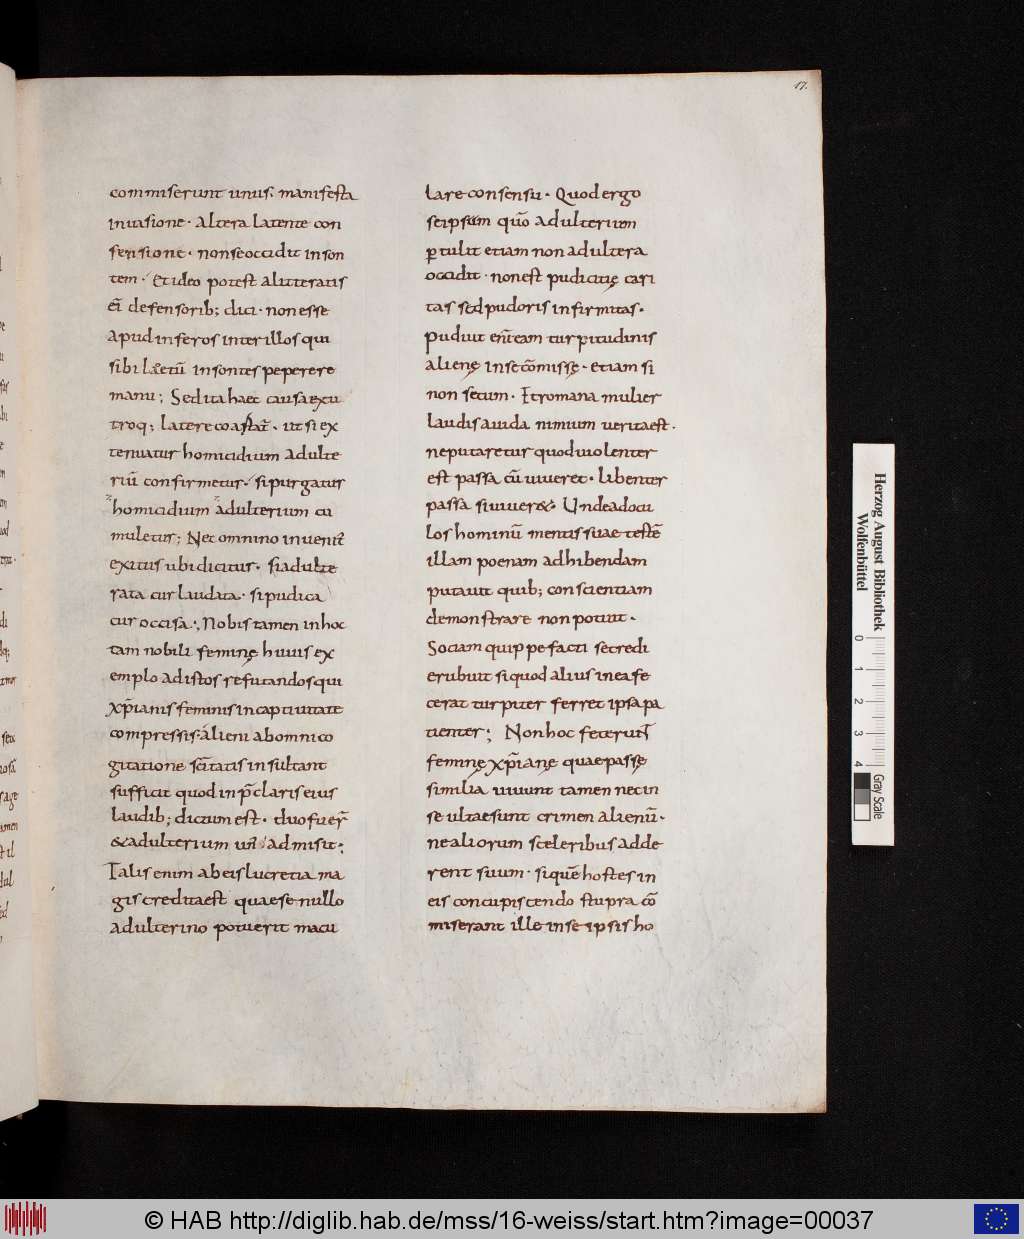 17.
commiserunt unus. manifesta
inuasione · altera latente con
sensione · nonseoccidit inson
tem · Et ideo potest alitteratis
eī defensorib; dici · nonesse
apud inferos inter illos qui
sibi laetū insontes peperere
manu; Sed ita haec causa excu
troq; latere coastat̄ · ut si ex
tenuatur homicidium adulte
riū confirmetur · si purgatur
homicidium adulterium cu
muletur; Nec omnino inuenit̄
exitus ubi dicitur · si adulte
rata cur laudata · si pudica
cur occisa ·, Nobis tamen in hoc
tam nobili feminę huius ex
emplo ad istos refutandos qui
xp̄ianis feminis in captiuitate
compressis · alieni ab omni co
gitatione sc̄itatis insultant
sufficit quod in p̄claris eius
laudib; dictum est · duo fuer̄
& adulterium un̄ admisit ·,
Talis enim ab eis lucretia ma
gis credita est quae se nullo
adulterino potuerit macu
lare consensu · Quod ergo
seipsum quō adulterum
ꝑtulit etiam non adultera
occidit · non est pudicitię cari
tas sed pudoris infirmitas ·
Puduit en̄ eam turpitudinis
alienę in se cōmissę · etiam si
non secum · Et romana mulier
laudis auida nimium uerita est ·
ne putaretur quod uiolenter
est passa cū uiueret · libenter
passa si uiuer& · Unde ad ocu
los hominū mentis suae testē
illam poenam adhibendam
putauit quib; conscientiam
demonstrare non potuit ·
Sociam quippe facti se credi
erubuit si quod alius in ea fe
cerat turpiter ferret ipsa pa
tienter; Non hoc fecerunt̄
feminę xp̄ianę quae passę
similia uiuunt tamen nec in
se ultae sunt crimen alienū ·
ne aliorum sceleribus adde
rent suum · si quē hostes in
eis concupiscendo stupra cō
miserant ille in se ipsis ho
Herzog August Bibliothek
Wolfenbüttel
0 1 2 3 4
Gray Scale
© HAB http://diglib.hab.de/mss/16-weiss/start.htm?image=00037